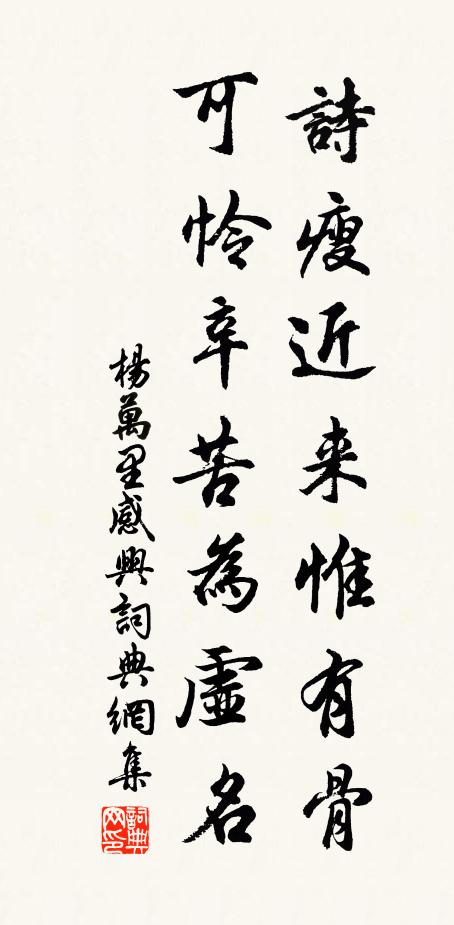 詩瘦近来惟有骨
可怜辛苦為虛名
楊萬里感興詞典網集
詞典網印